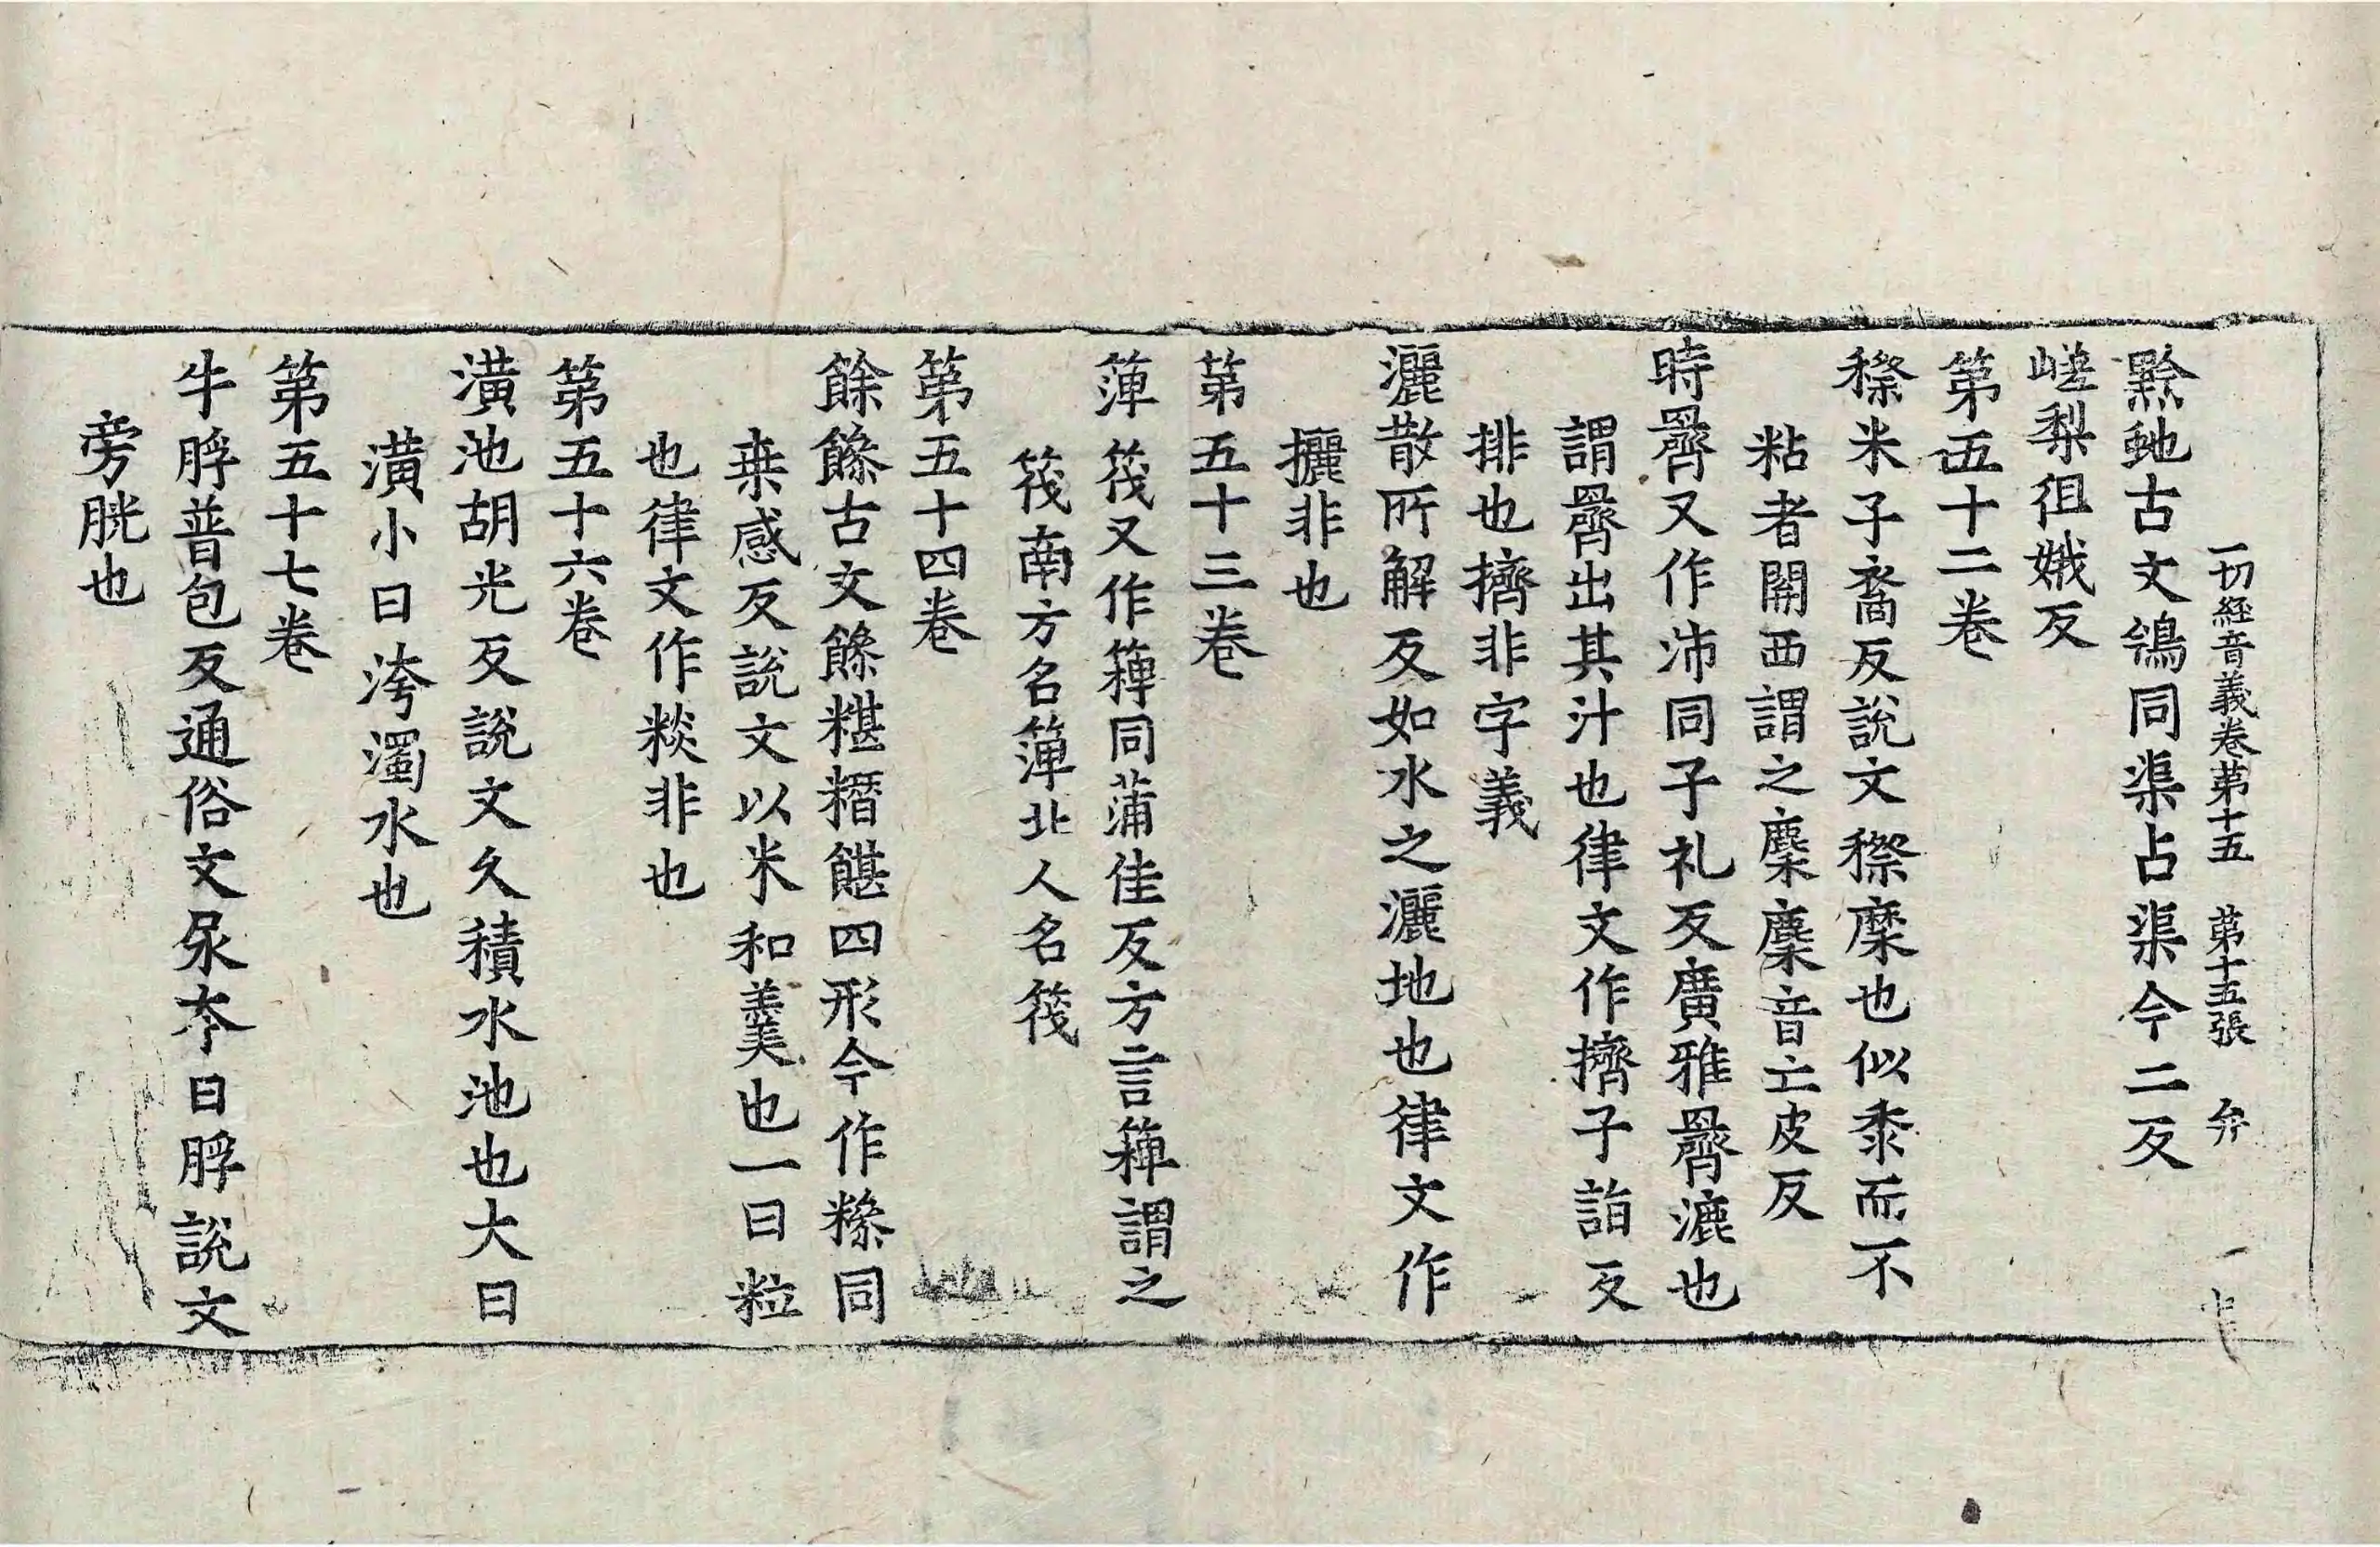 一切経音義卷第十五　第十五張　弁
黔虵古文鴒同渠占渠今二反
嵯梨徂娥反
第五十二卷
穄米子裔反說文穄穈也似黍而不
粘者關西謂之穈穈音亡皮反
時𦋅又作泲同子礼反廣雅𦋅漉也
謂𦋅出其汁也律文作擠子詣反
排也擠非字義
灑散所解反如水之灑地也律文作
攦非也
第五十三卷
箄筏又作䉬同蒲佳反方言䉬謂之
筏南方名箄北人名筏
第五十四卷
餘䉛古文䉛糂糣䭙四形今作糝同
桒感反說文以米和羹也一曰粒
也律文作䊏非也
第五十六卷
潢池胡光反說文久積水池也大曰
潢小曰洿濁水也
第五十七卷
牛脬普包反通俗文尿夲曰脬說文
旁胱也